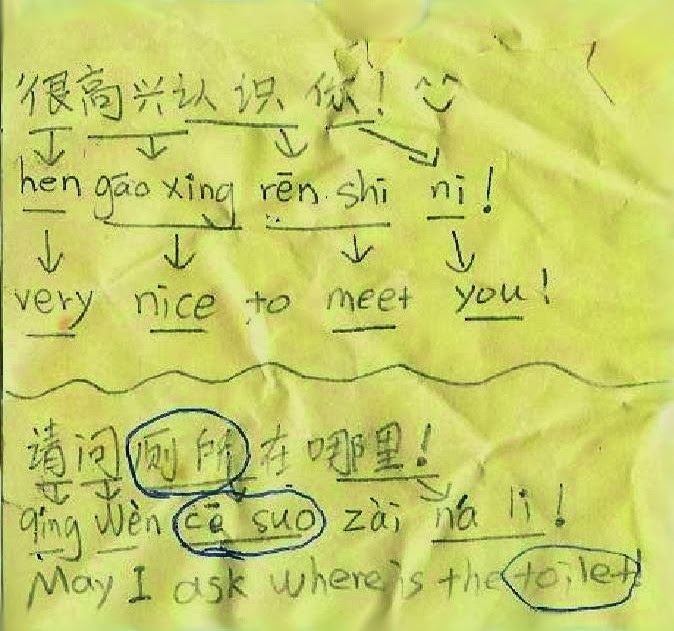 很高兴认识你!
hen gāo xing rēn shi ni!
very nice to meet you!
请问厕所在哪里!
qing wèn cē suo zài na li!
May I ask where is the toilet!